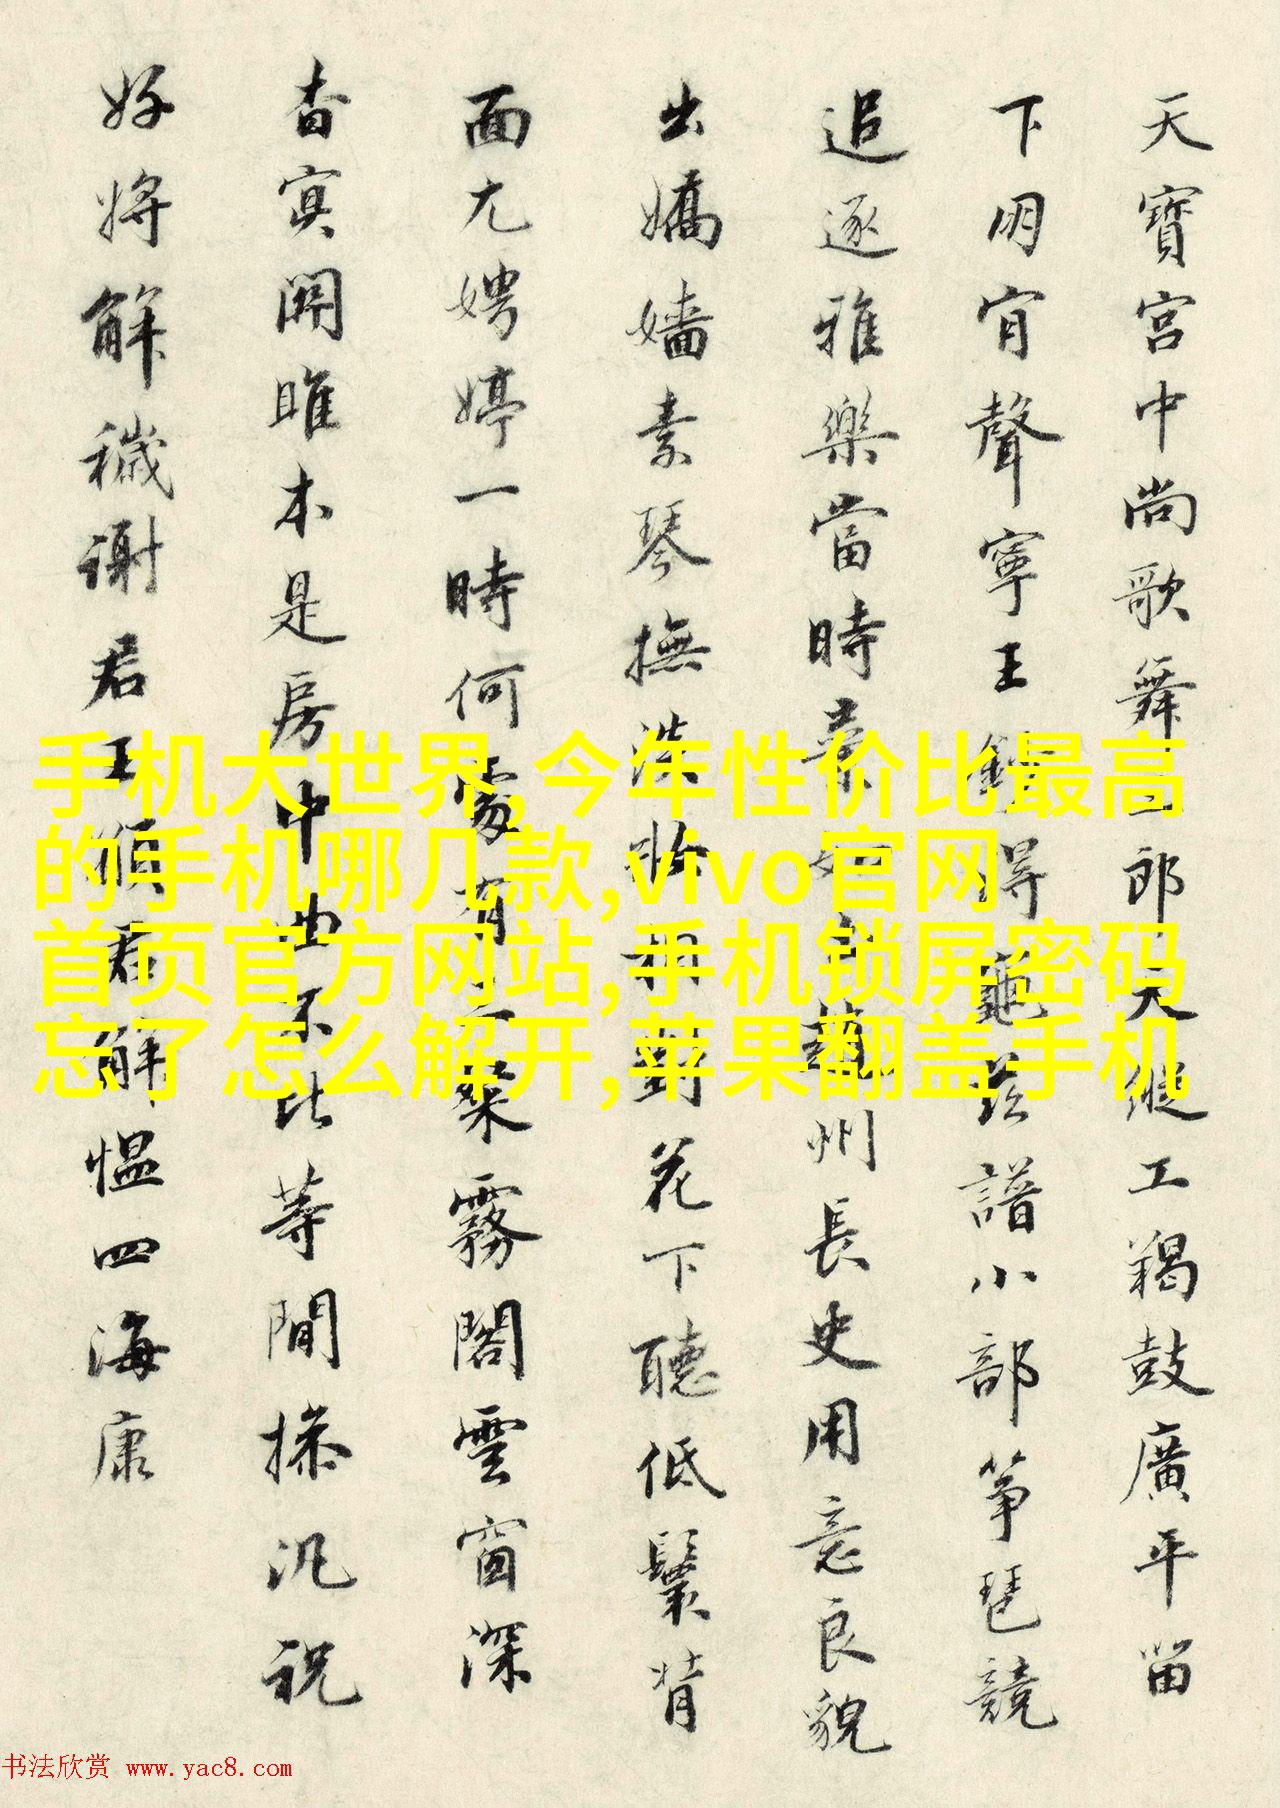 天寶宮中尚歌舞三郎天縱工羯鼓廣平留
下明宵聲寧王得龜茲譜小部箏琵競
追逐雅樂當時棄如土蘇州長史用意良貌
出嬌嬙素琴撫淡妝相對花下聽低鬟背
面尤娉婷一時何處有霧閣雲窗深
杳冥關雎本是房中曲不比等閒操汎祝
好將解穢謝君王願君解慍四海康
手机大世界,今年性价比最高
的手机哪几款,vivo官网
首页官方网站,手机锁屏密码
忘了怎么解开,苹果翻盖手机
书法欣赏 www.yac8.com